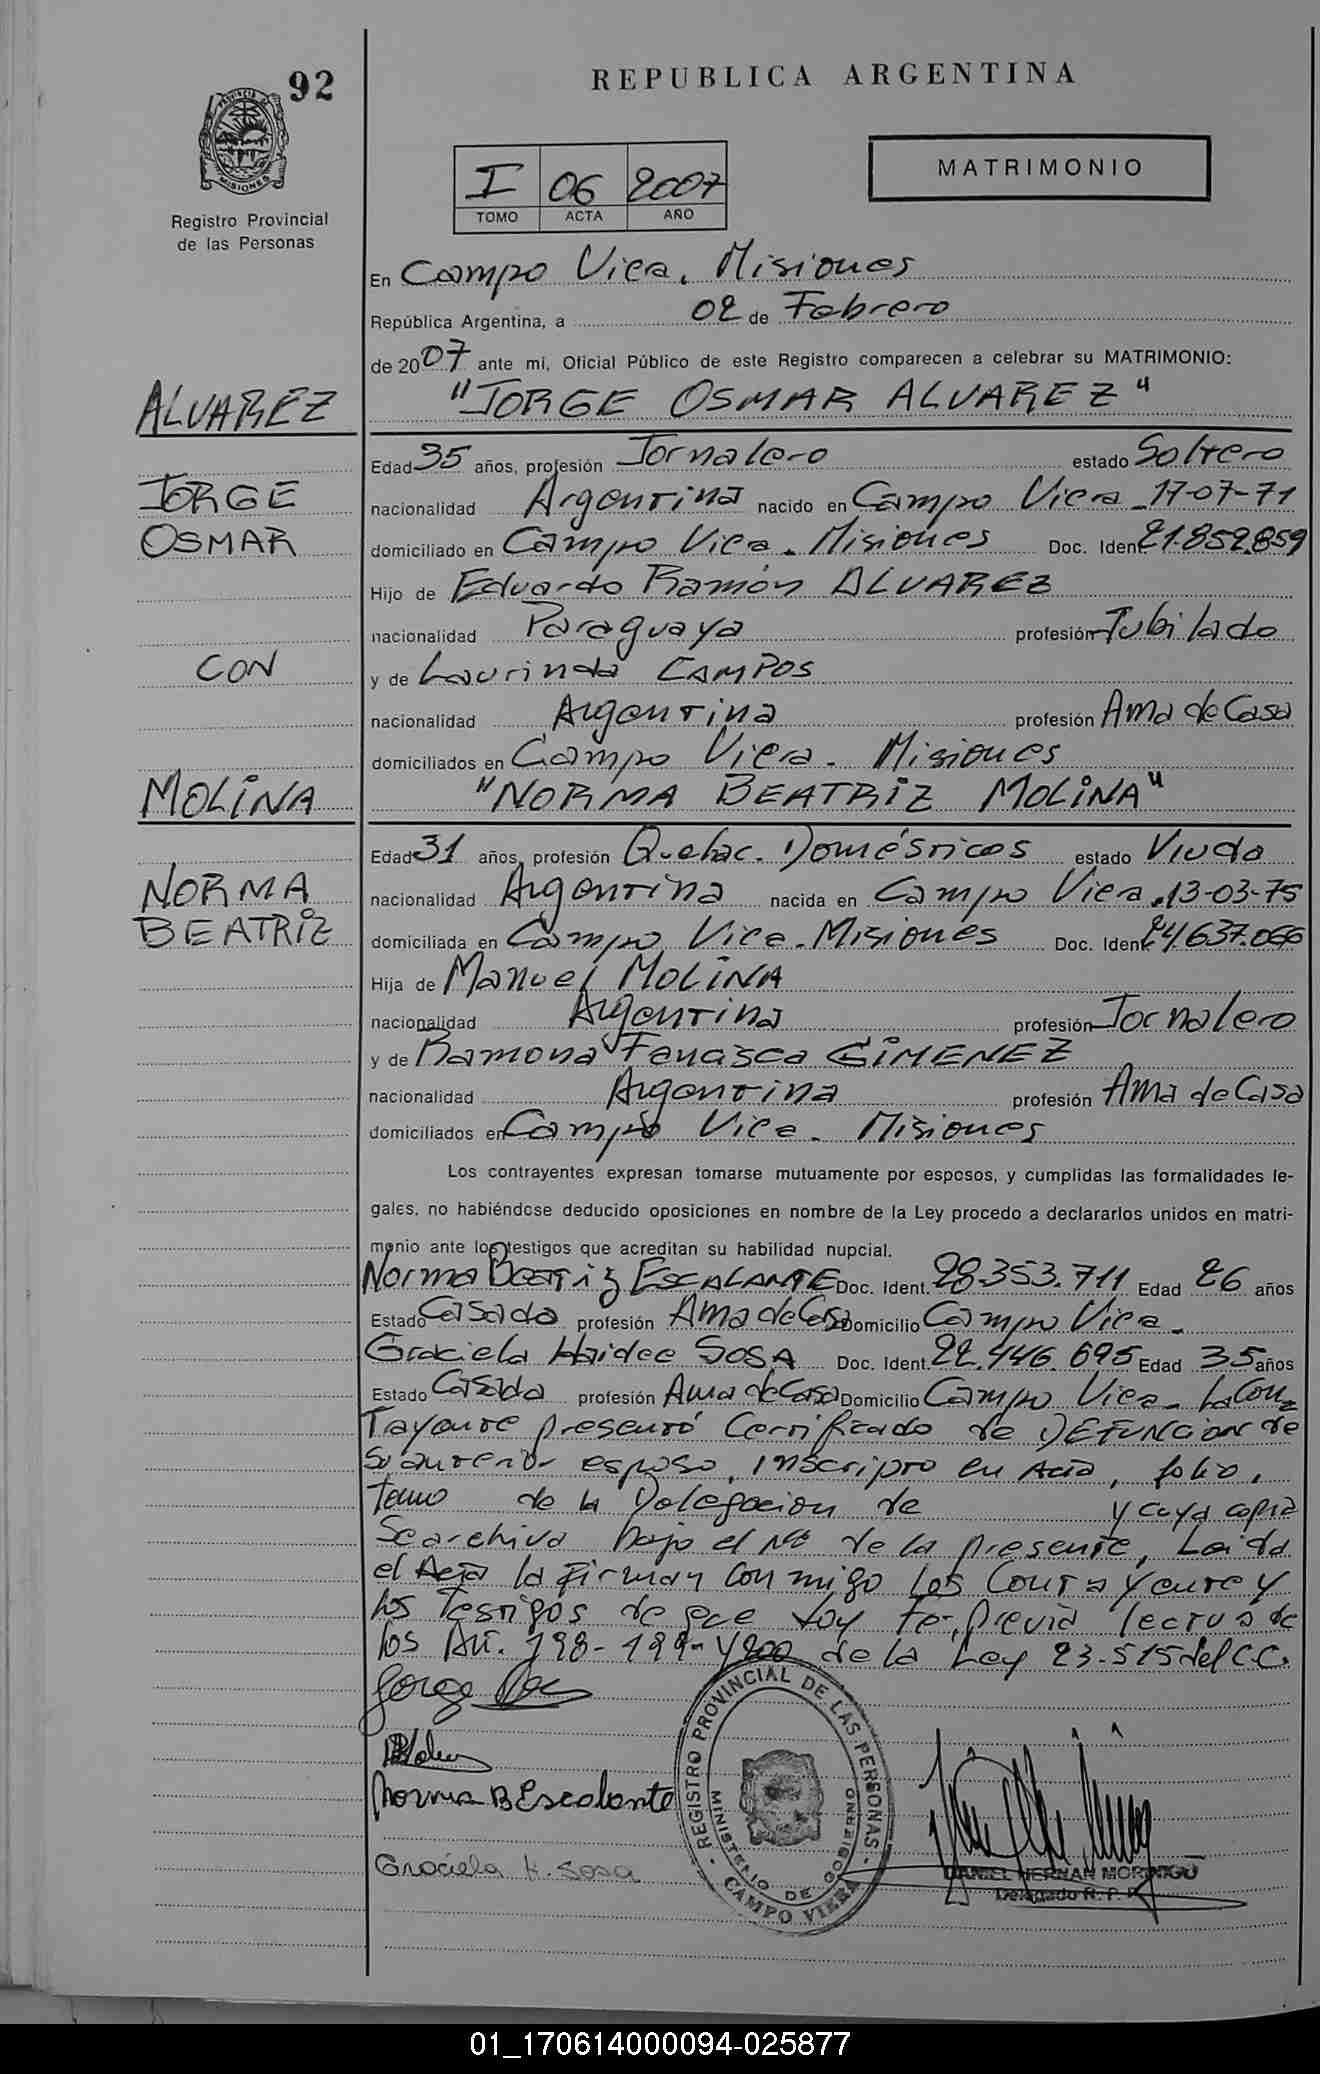 92
REPUBLICA ARGENTINA
PROVINCIA DE MISIONES
Registro Provincial
de las Personas
I 06 2007
TOMO ACTA AÑO
MATRIMONIO
En Campo Viera, Misiones
República Argentina, a 02 de Febrero
de 2007 ante mí, Oficial Público de este Registro comparecen a celebrar su MATRIMONIO:
ALVAREZ "JORGE OSMAR ALVAREZ"
Edad 35 años, profesión Jornalero estado Soltero
JORGE nacionalidad Argentina nacido en Campo Viera 17-07-71
OSMAR domiciliado en Campo Viera. Misiones Doc. Ident. 21.852.859
Hijo de Eduardo Ramón ALVAREZ
nacionalidad Paraguaya profesión Jubilado
CON y de Laurinda CAMPOS
nacionalidad Argentina profesión Ama de Casa
domiciliados en Campo Viera. Misiones
MOLINA "NORMA BEATRIZ MOLINA"
Edad 31 años, profesión Quehac. Domésticos estado Viuda
NORMA nacionalidad Argentina nacida en Campo Viera. 13-03-75
BEATRIZ domiciliada en Campo Viera. Misiones Doc. Ident. 24.637.066
Hija de Manuel MOLINA
nacionalidad Argentina profesión Jornalero
y de Ramona GIMENEZ
nacionalidad Argentina profesión Ama de Casa
domiciliados en Campo Viera. Misiones
Los contrayentes expresan tomarse mutuamente por esposos, y cumplidas las formalidades le-
gales, no habiéndose deducido oposiciones en nombre de la Ley procedo a declararlos unidos en matri-
monio ante los testigos que acreditan su habilidad nupcial.
Norma Beatriz ESCALANTE Doc. Ident. 28.353.711 Edad 26 años
Estado Casada profesión Ama de Casa Domicilio Campo Viera.
Graciela Haidee SOSA Doc. Ident. 22.446.695 Edad 35 años
Estado Casada profesión Ama de Casa Domicilio Campo Viera. La Con
Trayente presentó Certificado de DEFUNCION de
su anterior esposo, inscripto en Acta, folio,
Tomo de la Delegacion de y cuya copia
Se archiva bajo el Nº de la presente, Leida
el Acta la Firman con migo los Contrayente y
los Testigos de que doy fe, previa lectura de
los Art. 198-199-y 200 de la Ley 23.515 del C.C.
Jorge
Norma B Escalante
Graciela H. Sosa
REGISTRO PROVINCIAL DE LAS PERSONAS
MINISTERIO DE GOBIERNO
CAMPO VIERA
DANIEL HERNAN MORINIGO
Delegado R. P. P.
01_170614000094-025877